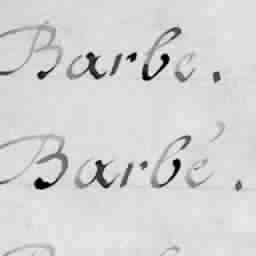 Barbe.
Barbé.